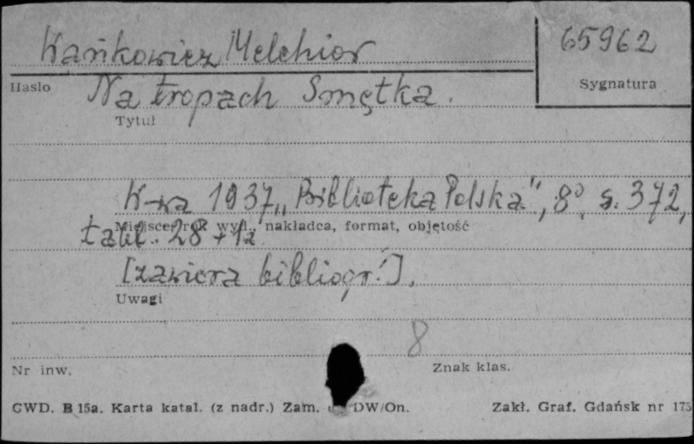 Wańkowicz Melchior
65962
Hasło
Sygnatura
Na tropach Smętka.
Tytuł
W-wa 1937 „Biblioteka Polska”, 8°, s. 372,
Miejsce, rok wyd., nakładca, format, objętość
tabl. 28 +
[zawiera bibliogr.].
Uwagi
8
Nr inw.
Znak klas.
CWD. B 15a. Karta katal. (z nadr.) Zam. DW/On.
Zakł. Graf. Gdańsk nr 175